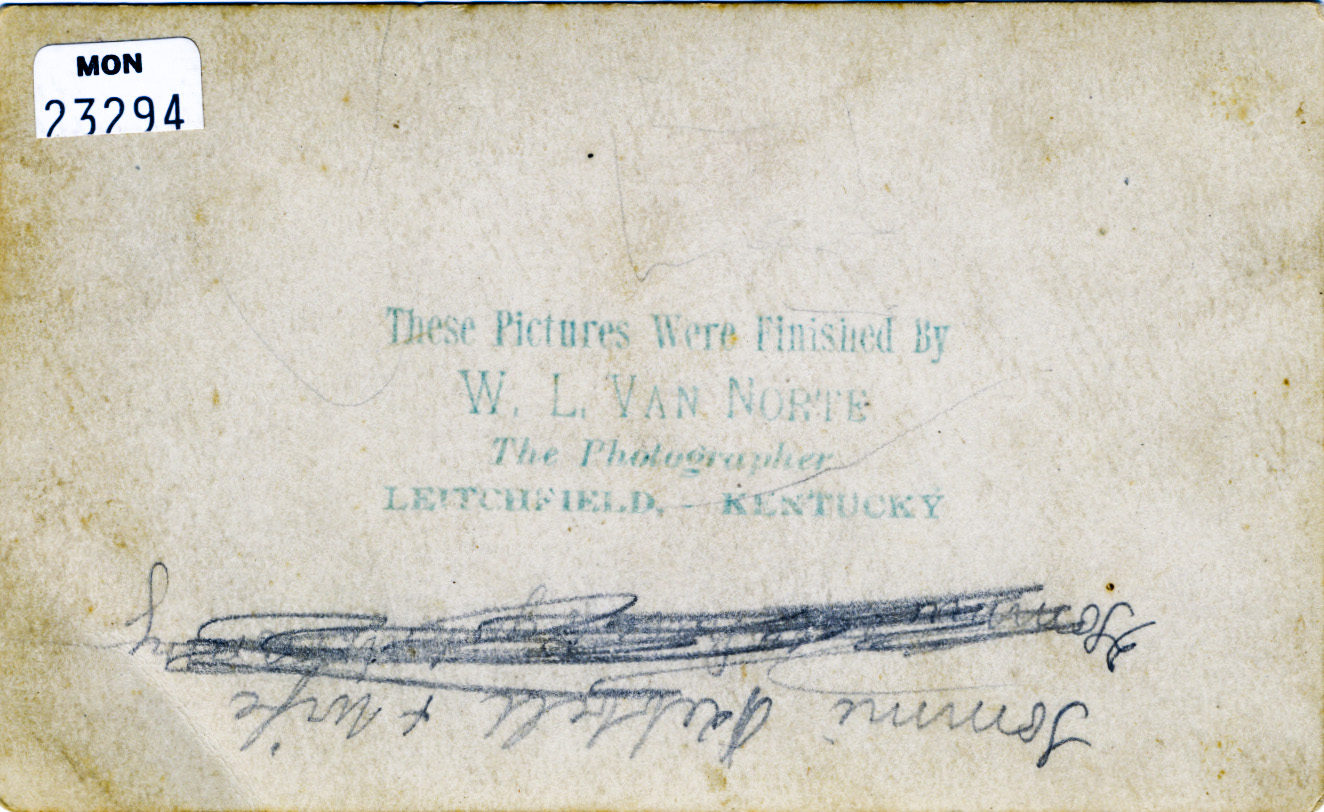 MON
23294
These Pictures Were Finished By
W. L. VAN NORTE
The Photographer
LEITCHFIELD, - KENTUCKY
Tommie & wife